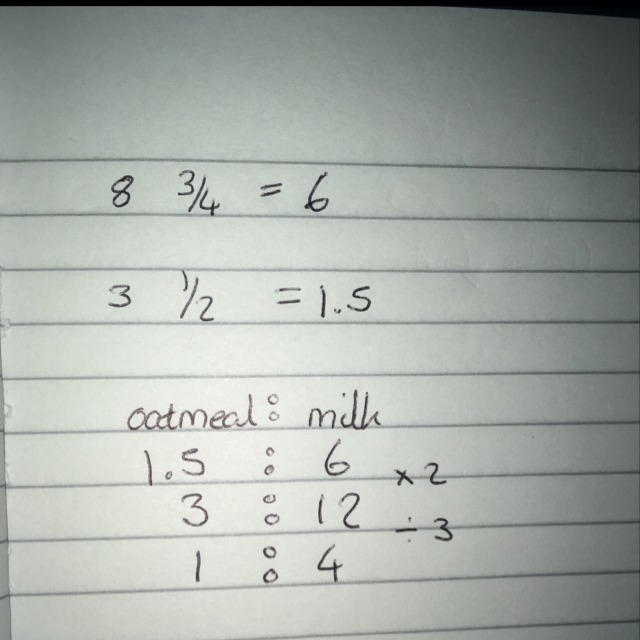 8 3/4 = 6
3 1/2 = 1.5
oatmeal : milk
1.5 : 6 × 2
3 : 12 ÷ 3
1 : 4